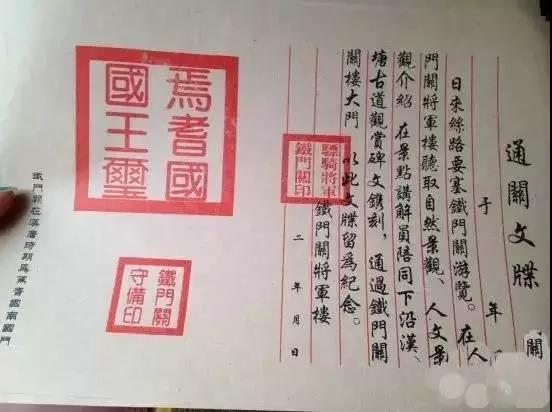 通關文牒
關
于 年
日来絲路要塞鐵門關游覽。在人
門關將軍樓聽取自然景觀、人文景
觀介紹 在景點講解員陪同下沿漢、
塘古道觀賞碑文鐫刻，通過鐵門關
關樓大門 以此文牒留為紀念。
鐵門關將軍樓
二 年 月 日
驃騎將軍
鐵門關印
焉耆國
國王璽
鐵門關
守備印
鐵門關在漢唐時期為焉耆國南國門